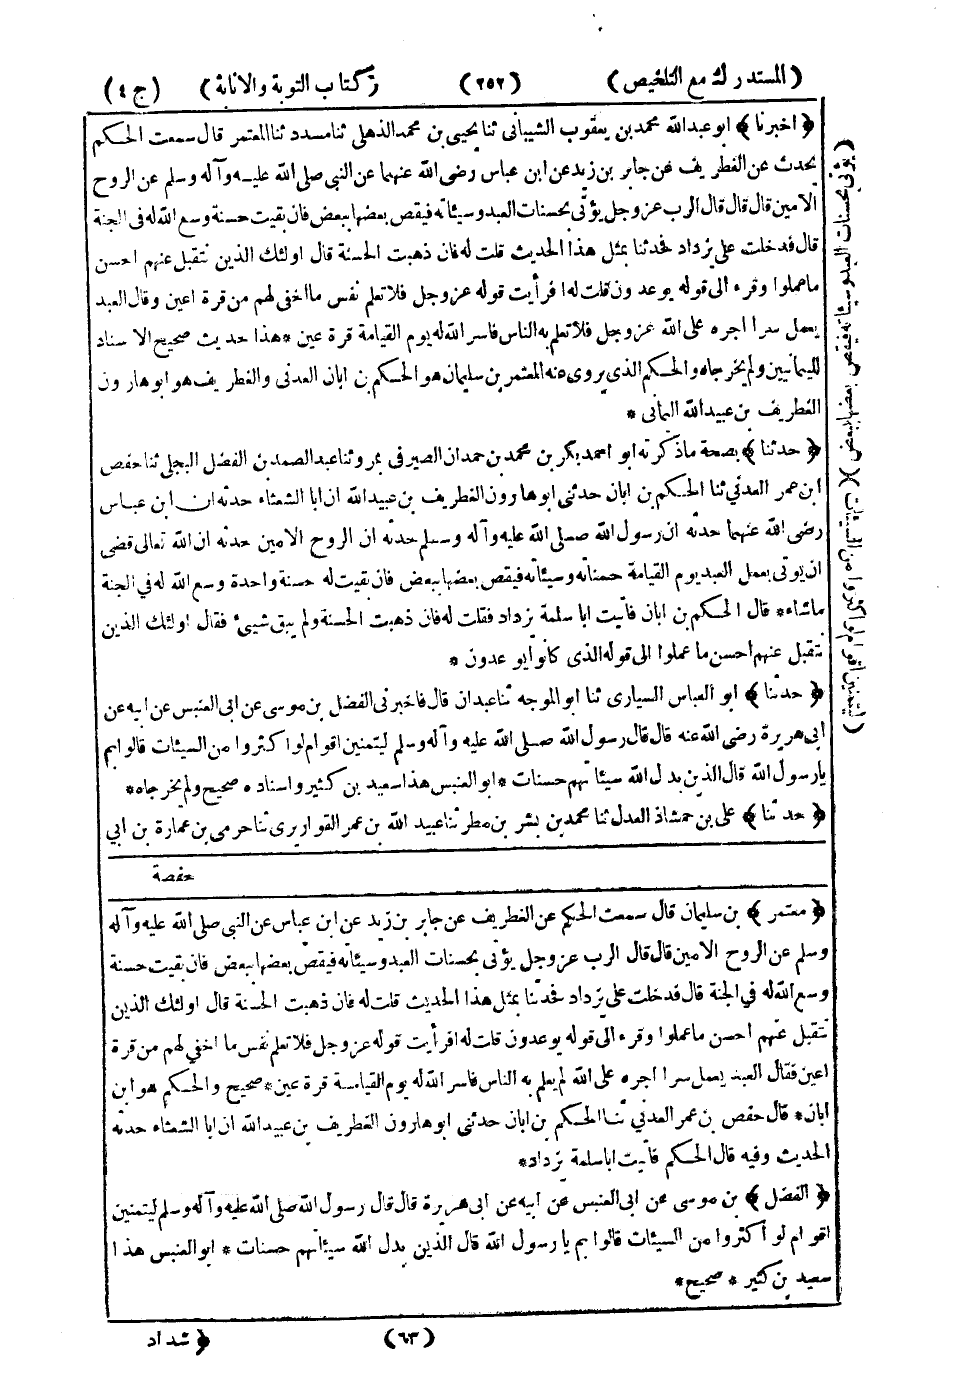 (المستدرك مع التلخيص) (٢٥٢) (كتاب التوبة والانابة) (ج ٤)
﴿ اخبرنا ﴾ ابو عبد الله محمد بن يعقوب الشيبانى ثنا يحيى بن محمد الذهلى ثنا مسدد ثنا المعتمر قال سمعت الحكم
يحدث عن الغطريف عن جابر بن زيد عن ابن عباس رضى الله عنهما عن النبى صلى الله عليه وآله وسلم عن الروح
الامين قال قال قال الرب عز وجل يؤتى بحسنات العبد وسيئاته فيقص بعضها ببعض فان بقيت حسنة وسع الله له فى الجنة
قال فدخلت على يزداد فحدثنا بمثل هذا الحديث قلت له فان ذهبت الحسنة قال اولئك الذين نتقبل عنهم احسن
ما عملوا وقرء الى قوله يوعدون قلت له افرأيت قوله عز وجل فلا تعلم نفس ما اخفى لهم من قرة اعين وقال العبد
يعمل سرا اجره على الله عز وجل فلا تعلم به الناس فاسر الله له يوم القيامة قرة عين * هذا حديث صحيح الاسناد
لليمانيين ولم يخرجاه والحكم الذى يروى عنه المعتمر بن سليمان هو الحكم بن ابان العدنى والغطريف هو ابو هارون
الغطريف بن عبيد الله اليمانى *
﴿ حدثنا ﴾ بصحة ما ذكرته ابو احمد بكر بن محمد بن حمدان الصيرفى بمرو ثنا عبد الصمد بن الفضل البجلى ثنا حفص
ابن عمر العدني ثنا الحكم بن ابان حدثنى ابو هارون الغطريف بن عبيد الله ان ابا الشعثاء حدثه ان ابن عباس
رضى الله عنهما حدثه ان رسول الله صلى الله عليه وآله وسلم حدثه ان الروح الامين حدثه ان الله تعالى قضى
ان يوتى بعمل العبد يوم القيامة حسناته وسيئاته فيقص بعضها ببعض فان بقيت له حسنة واحدة وسع الله له في الجنة
ماشاء * قال الحكم بن ابان فأتيت ابا سلمة يزداد فقلت له فان ذهبت الحسنة ولم يبق شيئ فقال اولئك الذين
نتقبل عنهم احسن ما عملوا الى قوله الذى كانوا يوعدون *
﴿ حدثنا ﴾ ابو العباس السيارى ثنا ابو الموجه ثنا عبدان قال فاخبرنى الفضل بن موسى عن ابى العنبس عن ابيه عن
ابى هريرة رضى الله عنه قال قال رسول الله صلى الله عليه وآله وسلم ليتمنين اقوام لو اكثروا من السيئات قالوا بم
يا رسول الله قال الذين بدل الله سيئاتهم حسنات * ابو العنبس هذا سعيد بن كثير واسناده صحيح ولم يخرجاه *
﴿ حدثنا ﴾ على بن حمشاذ العدل ثنا محمد بن بشر بن مطر ثنا عبيد الله بن عمر القواريرى ثنا حرمى بن عمارة بن ابي
حفصة
﴿ معتمر ﴾ بن سليمان قال سمعت الحكم عن الغطريف عن جابر بن زيد عن ابن عباس عن النبى صلى الله عليه وآله
وسلم عن الروح الامين قال قال الرب عز وجل يؤتى بحسنات العبد وسيئاته فيقص بعضها ببعض فان بقيت حسنة
وسع الله له في الجنة قال فدخلت على يزداد فحدثنا بمثل هذا الحديث قلت له فان ذهبت الحسنة قال اولئك الذين
نتقبل عنهم احسن ما عملوا وقرء الى قوله يوعدون قلت له افرأيت قوله عز وجل فلا تعلم نفس ما اخفي لهم من قرة
اعين فقال العبد يعمل سرا اجره على الله لم يعلم به الناس فاسر الله له يوم القيامة قرة عين * صحيح والحكم هو ابن
ابان * قال حفص بن عمر العدني ثنا الحكم بن ابان حدثنى ابو هارون الغطريف بن عبيد الله ان ابا الشعثاء حدثه
الحديث وفيه قال الحكم فأتيت ابا سلمة يزداد *
﴿ الفضل ﴾ بن موسى عن ابى العنبس عن ابيه عن ابى هريرة قال قال رسول الله صلى الله عليه وآله وسلم ليتمنين
اقوام لو أكثروا من السيئات قالوا بم يا رسول الله قال الذين بدل الله سيئاتهم حسنات * ابو العنبس هذا
سعيد بن كثير * صحيح *
(٦٣) ﴿ شداد
(يؤتى بحسنات العبد وسيئاته فيقص بعضها ببعض) (ليتمنين أقوام لو أكثروا من السيئات)